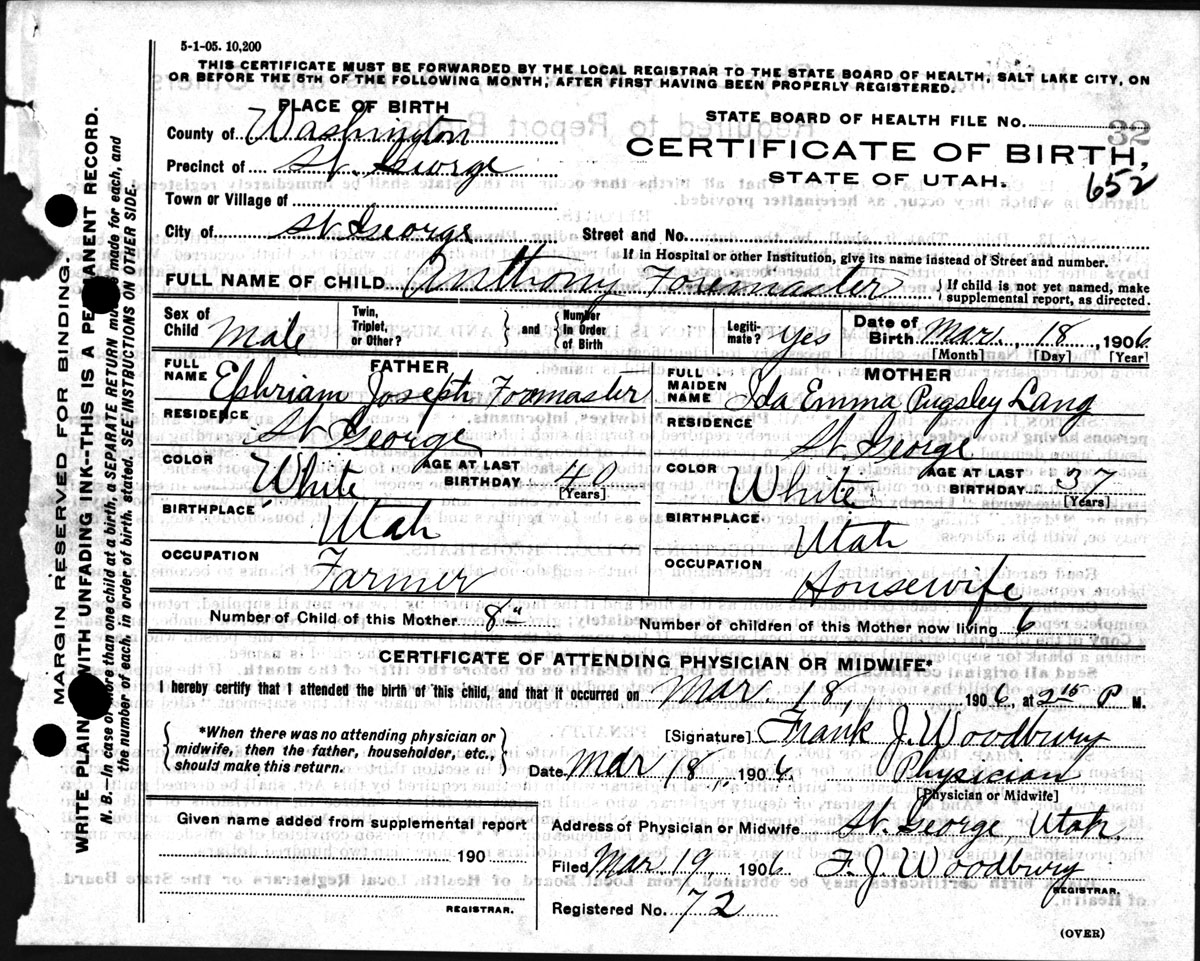 5-1-05. 10,200
THIS CERTIFICATE MUST BE FORWARDED BY THE LOCAL REGISTRAR TO THE STATE BOARD OF HEALTH, SALT LAKE CITY, ON
OR BEFORE THE 5TH OF THE FOLLOWING MONTH, AFTER FIRST HAVING BEEN PROPERLY REGISTERED.
PLACE OF BIRTH
County of Washington
Precinct of St. George
Town or Village of
City of St George
STATE BOARD OF HEALTH FILE NO. 32
CERTIFICATE OF BIRTH,
STATE OF UTAH.
652
Street and No.
If in Hospital or other Institution, give its name instead of Street and number.
FULL NAME OF CHILD Anthony Foremaster
If child is not yet named, make
supplemental report, as directed.
Sex of Child Male
Twin, Triplet, or Other?
and
Number in Order of Birth
Legiti-mate? yes
Date of Birth Mar. 18, 1906
[Month] [Day] [Year]
FATHER
FULL NAME Ephriam Joseph Formaster
RESIDENCE St George
COLOR White
AGE AT LAST BIRTHDAY 40
[Years]
BIRTHPLACE Utah
OCCUPATION Farmer
MOTHER
FULL MAIDEN NAME Ida Emma Pugsley Lang
RESIDENCE St. George
COLOR White
AGE AT LAST BIRTHDAY 37
[Years]
BIRTHPLACE Utah
OCCUPATION Housewife
Number of Child of this Mother 8"
Number of children of this Mother now living 6
CERTIFICATE OF ATTENDING PHYSICIAN OR MIDWIFE*
I hereby certify that I attended the birth of this child, and that it occurred on Mar 18, 1906, at 2 15 P M.
*When there was no attending physician or
midwife, then the father, householder, etc.,
should make this return.
[Signature] Frank J. Woodbury
Date Mar 18, 1906. Physician
[Physician or Midwife]
Given name added from supplemental report
190
REGISTRAR.
Address of Physician or Midwife St. George, Utah.
Filed Mar 19, 1906 F. J. Woodbury
REGISTRAR.
Registered No. 72
(OVER)
MARGIN RESERVED FOR BINDING.
WRITE PLAIN WITH UNFADING INK--THIS IS A PERMANENT RECORD.
N. B.--In case of more than one child at a birth, a SEPARATE RETURN must be made for each, and
the number of each, in order of birth, stated. SEE INSTRUCTIONS ON OTHER SIDE.